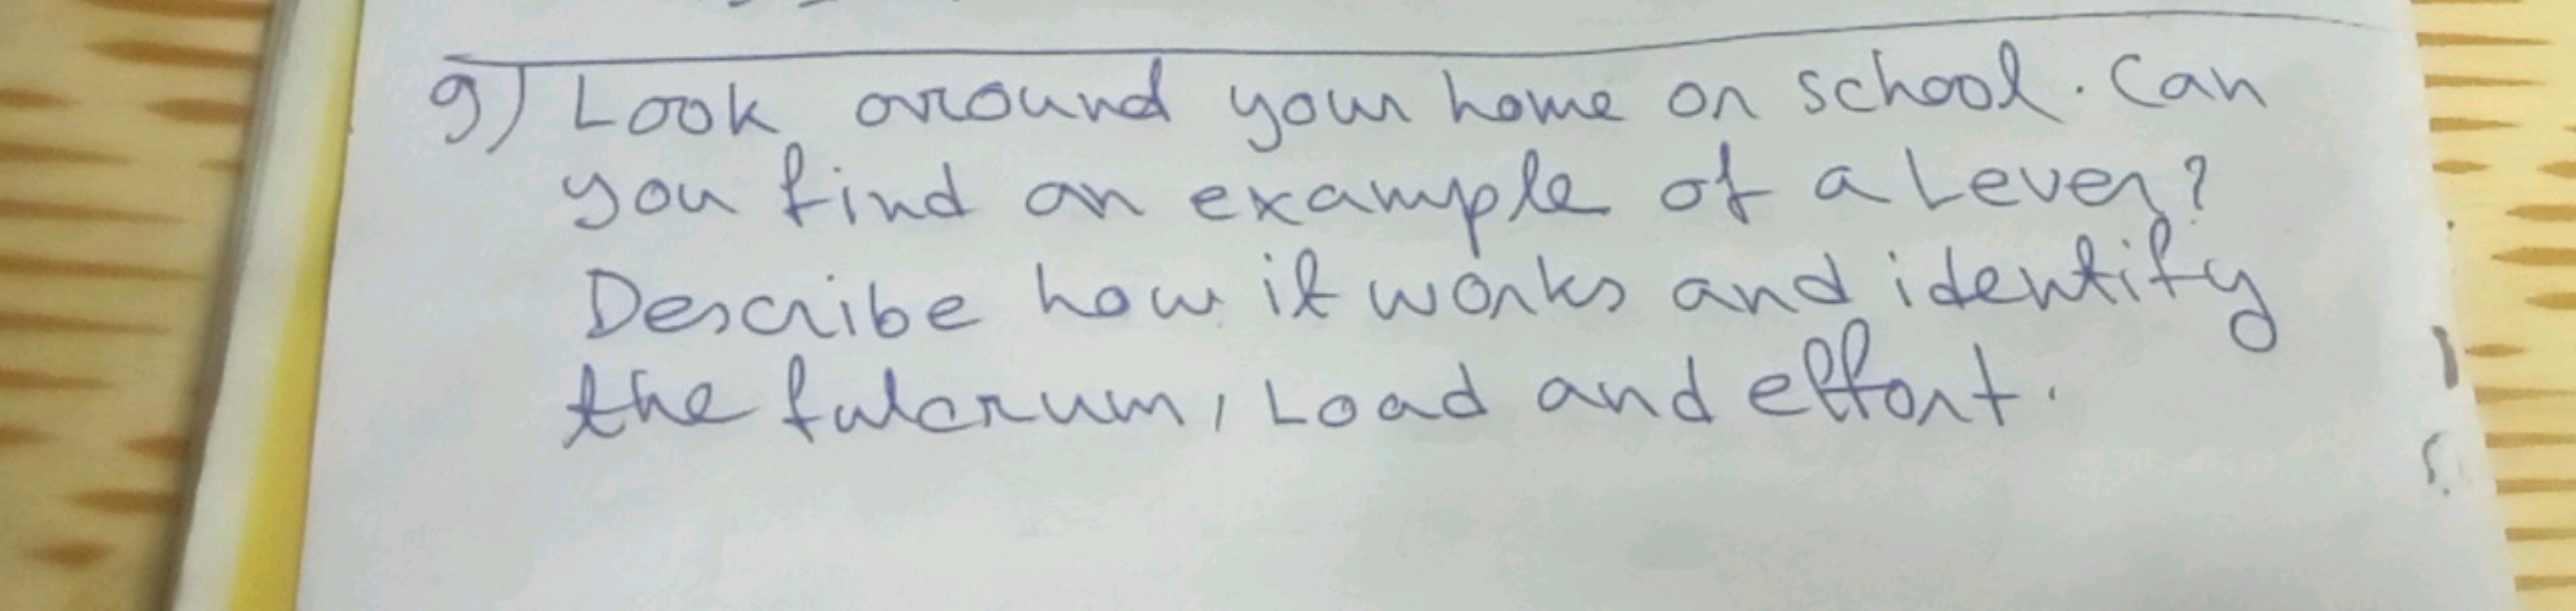 9) Look around your home or school. Can
you find an example of a Lever?
Describe how it works and identify
the fulcrum, Load and effort.